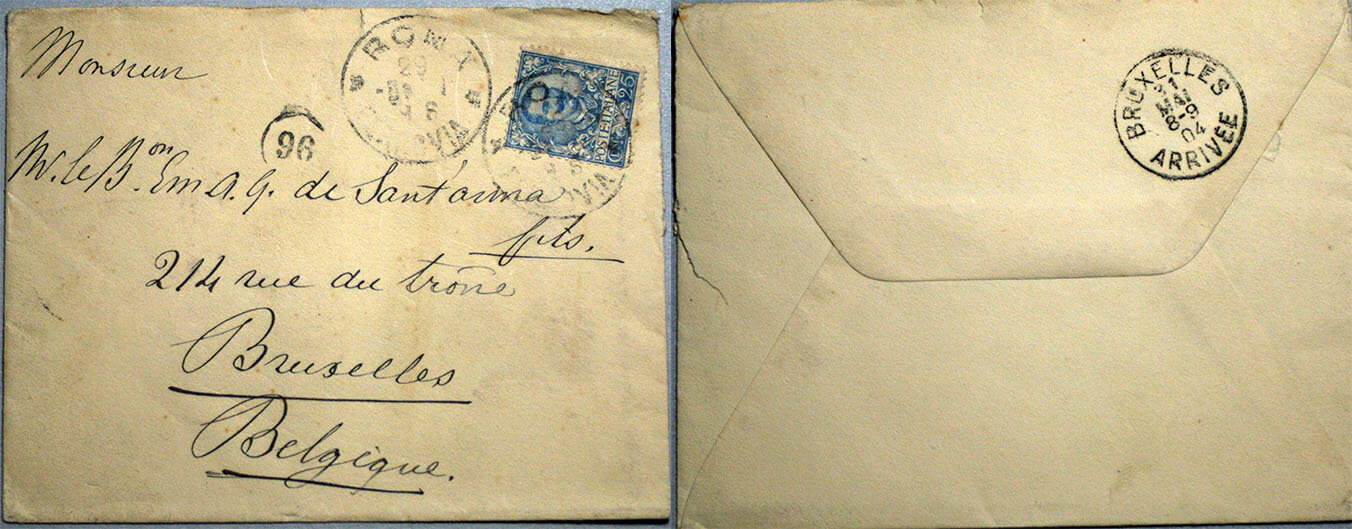 Monsieur
M. le Bon. Em A. G. de Sant'anna
fils.
214 rue du trône
Bruxelles
Belgique.
96
ROMA
29
POSTE ITALIANE
C. 25
BRUXELLES
31
MAI
8
1904
ARRIVÉE